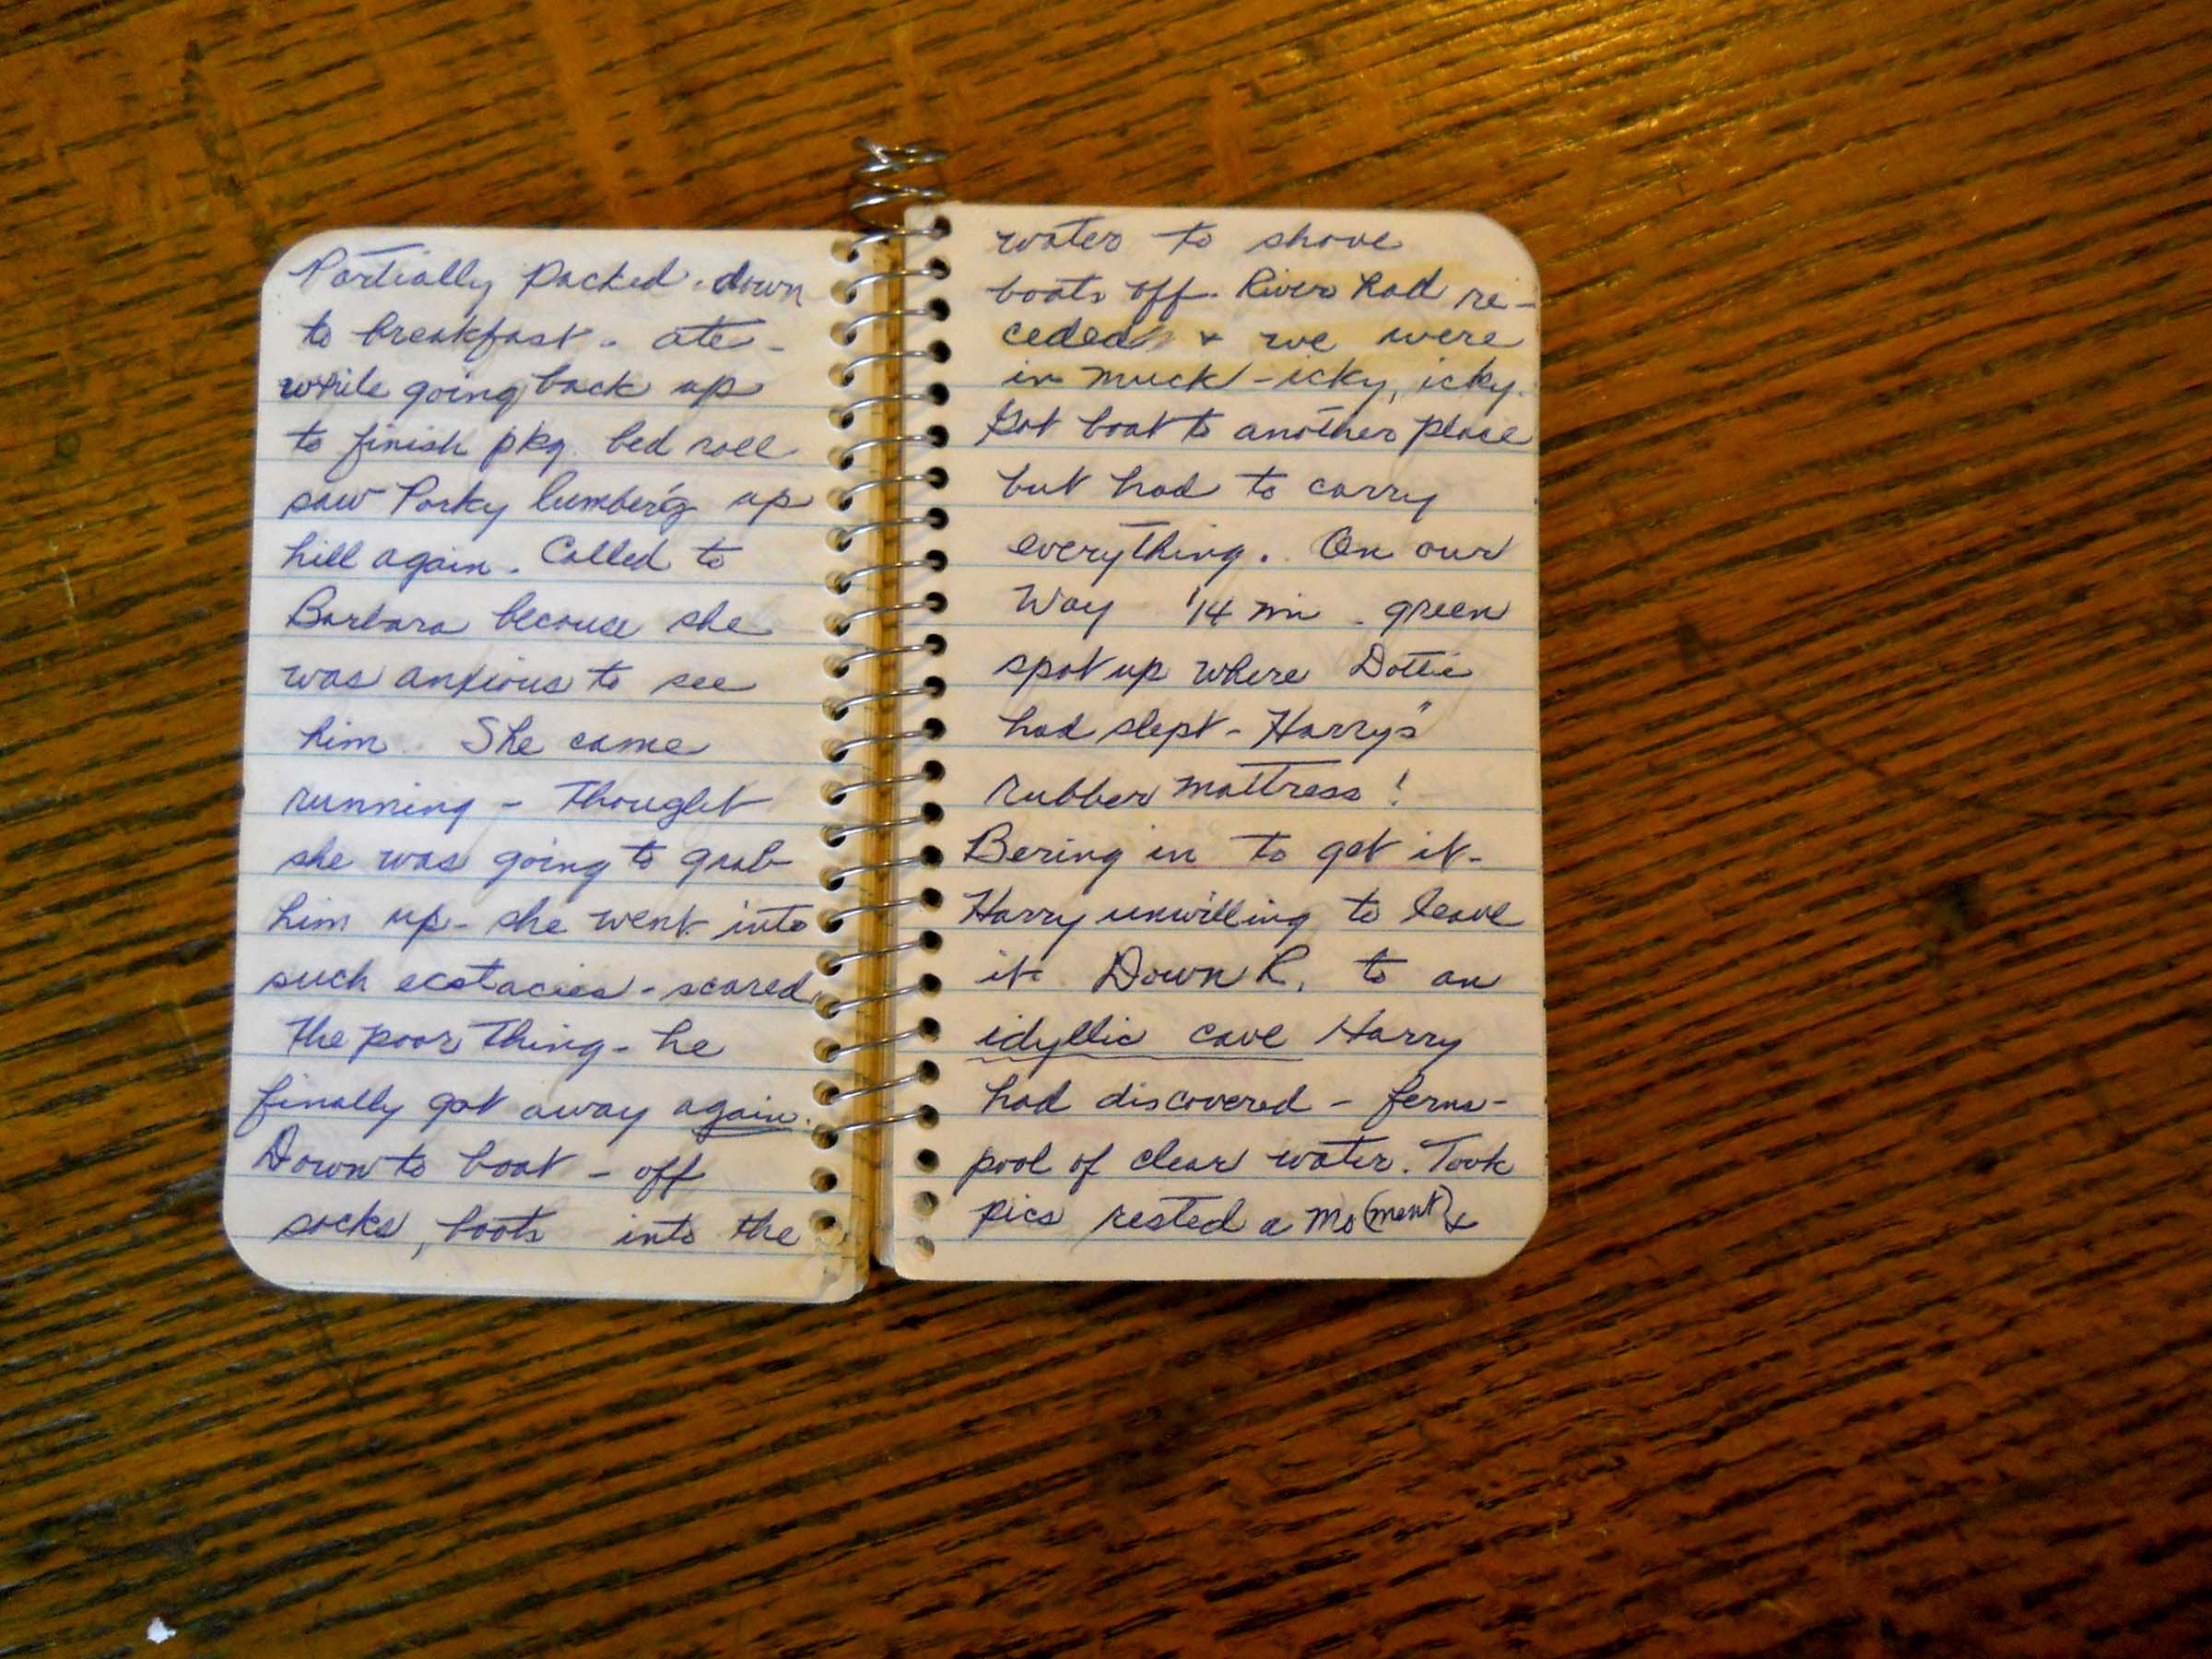 Partially packed - down
to breakfast - ate -
while going back up
to finish pkg. bed roll
saw Porky lumber'g up
hill again. Called to
Barbara because she
was anxious to see
him. She came
running - thought
she was going to grab
him up - she went into
such ecstacies - scared
the poor thing - he
finally got away again.
Down to boat - off
socks, boots into the
water to shove
boats off. River had re-
ceded & we were
in muck - icky, icky.
Got boat to another place
but had to carry
everything. On our
Way 1/4 mi - green
spot up where Dottie
had slept - Harry's
rubber mattress!
Bering in to get it -
Harry unwilling to leave
it. Down R. to an
idyllic cave Harry
had discovered - ferns -
pool of clear water. Took
pics rested a mo(ment) &